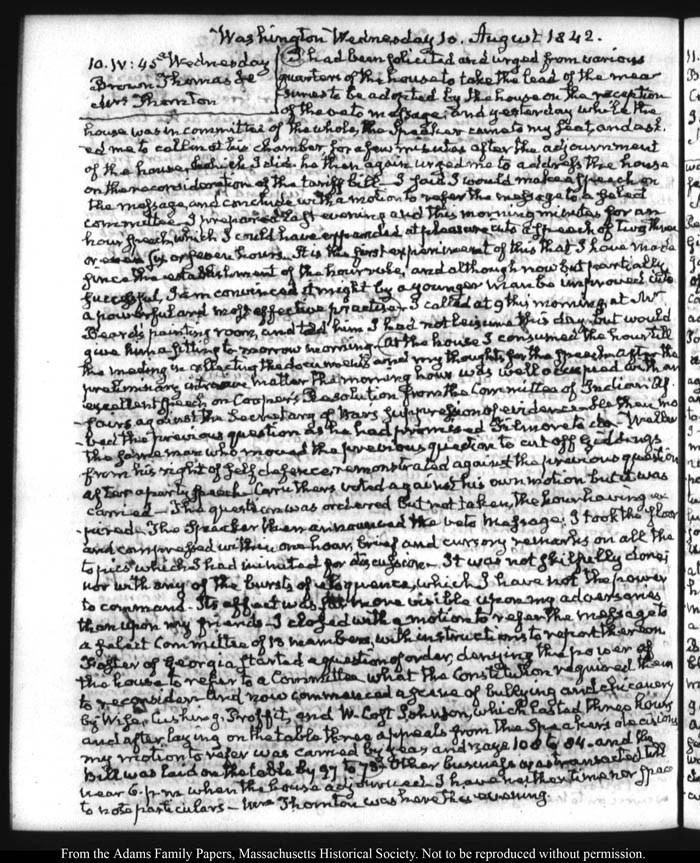 Washington Wednesday 10. August 1842.
10. IV:45 Wednesday
Brown Thomas
Mrs Thornton
I had been solicited and urged from various
quarters of the house to take the lead of the mea
sures to be adopted by the house on the reception
of the veto message; and yesterday while the
house was in committee of the whole, the Speaker came to my seat, and ask
ed me to call at his chamber for a few minutes after the adjournment
of the house, which I did. he then again urged me to address the house
on the reconsideration of the tariff bill. I said I would make a speech on
the message, and conclude with a motion to refer the message to a select
committee. I prepared last evening and this morning minutes for an
hour speech, which I could have expanded at pleasure into a speech of two, three
or even six or seven hours. It is the first experiment of this that I have made
since the establishment of the hour rule, and although now but partially
successful, I am convinced it might by a younger man be improved into
a powerful and most effective practise. I called at 9 this morning, at Mr
Beard's painting room, and told him I had not leisure this day but would
give him a sitting to-morrow morning. At the house I consumed the hour till
the meeting in collecting the documents and my thoughts for the speech after the
preliminary matter the morning hour was well occupied with an
excellent speech on Cooper's Resolution from the Committee of Indian Af-
fairs against the Secretary of Wars suppression of evidence
the previous question as he had promised Filmore to do. Weller
the same man who moved the previous question to cut off Giddings
from his right of self defence, remonstrated against the previous question
after a party speech. Caruthers voted against his own motion but it was
carried — The question was ordered but not taken, the hour having ex
pired. The Speaker then announced the veto Message; I took the floor
and compressed within one hour, brief and cursory remarks on all the
topics which I had minuted for discussion. It was not skilfully done;
nor with any of the bursts of eloquence, which I have not the power
to command. Its effect was far more visible upon my adversaries
than upon my friends. I closed with a motion to refer the message to
a select Committee of 13 members, with instructions to report thereon
Foster of Georgia started a question of order, denying the power of
the house to refer to a Committee what the Constitution required them
to reconsider. And now commenced a scene of bullying and chicanery
by Wise, Cushing, Proffit, and W. Cost Johnson, which lasted three hours
and after laying on the table three appeals from the Speakers decisions
my motion to refer was carried by yeas and nays 108 to 84. and the
Bill was laid on the table by 97 to 73. Other business was transacted till
near 6. p.m. when the house adjourned. I have neither time nor space
to note particulars — Mrs Thornton was here this evening.
From the Adams Family Papers, Massachusetts Historical Society. Not to be reproduced without permission.